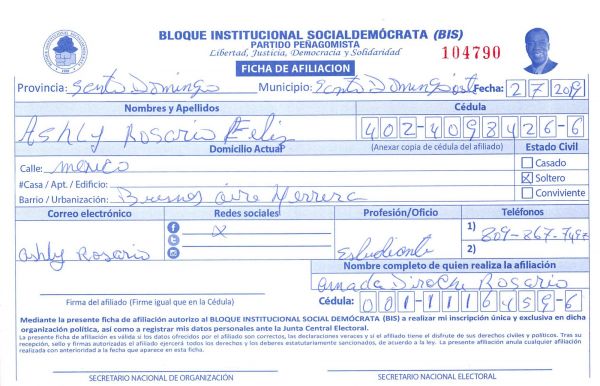 BLOQUE INSTITUCIONAL SOCIALDEMÓCRATA (BIS)
PARTIDO PEÑAGOMISTA
Libertad, Justicia, Democracia y Solidaridad
104790
FICHA DE AFILIACION
Provincia: Santo Domingo Municipio: Santo Domingo Fecha: 2 7 2019
Nombres y Apellidos Cédula
Ashly Rosario Feliz 402-4098426-6
Domicilio Actual (Anexar copia de cédula del afiliado) Estado Civil
Calle: mexico Casado
#Casa / Apt. / Edificio: X Soltero
Barrio / Urbanización: Buenos aire Herrera Conviviente
Correo electrónico Redes sociales Profesión/Oficio Teléfonos
1) 809-867-
ashly Rosario X Estudiante 2)
Nombre completo de quien realiza la afiliación
Rosario
Firma del afiliado (Firme igual que en la Cédula) Cédula: 001-1116459-6
Mediante la presente ficha de afiliación autorizo al BLOQUE INSTITUCIONAL SOCIAL DEMÓCRATA (BIS) a realizar mi inscripción única y exclusiva en dicha
organización política, así como a registrar mis datos personales ante la Junta Central Electoral.
La presente ficha de afiliación es válida si los datos ofrecidos por el afiliado son correctos, las declaraciones veraces y si el afiliado tiene el disfrute de sus derechos civiles y políticos. Tras su
recepción, sello y firmas autorizadas el afiliado ejercerá todos los derechos y los deberes estatutariamente sancionados, de acuerdo a la ley. La presente afiliación anula cualquier afiliación
realizada con anterioridad a la fecha que aparece en esta ficha.
SECRETARIO NACIONAL DE ORGANIZACIÓN SECRETARIO NACIONAL ELECTORAL